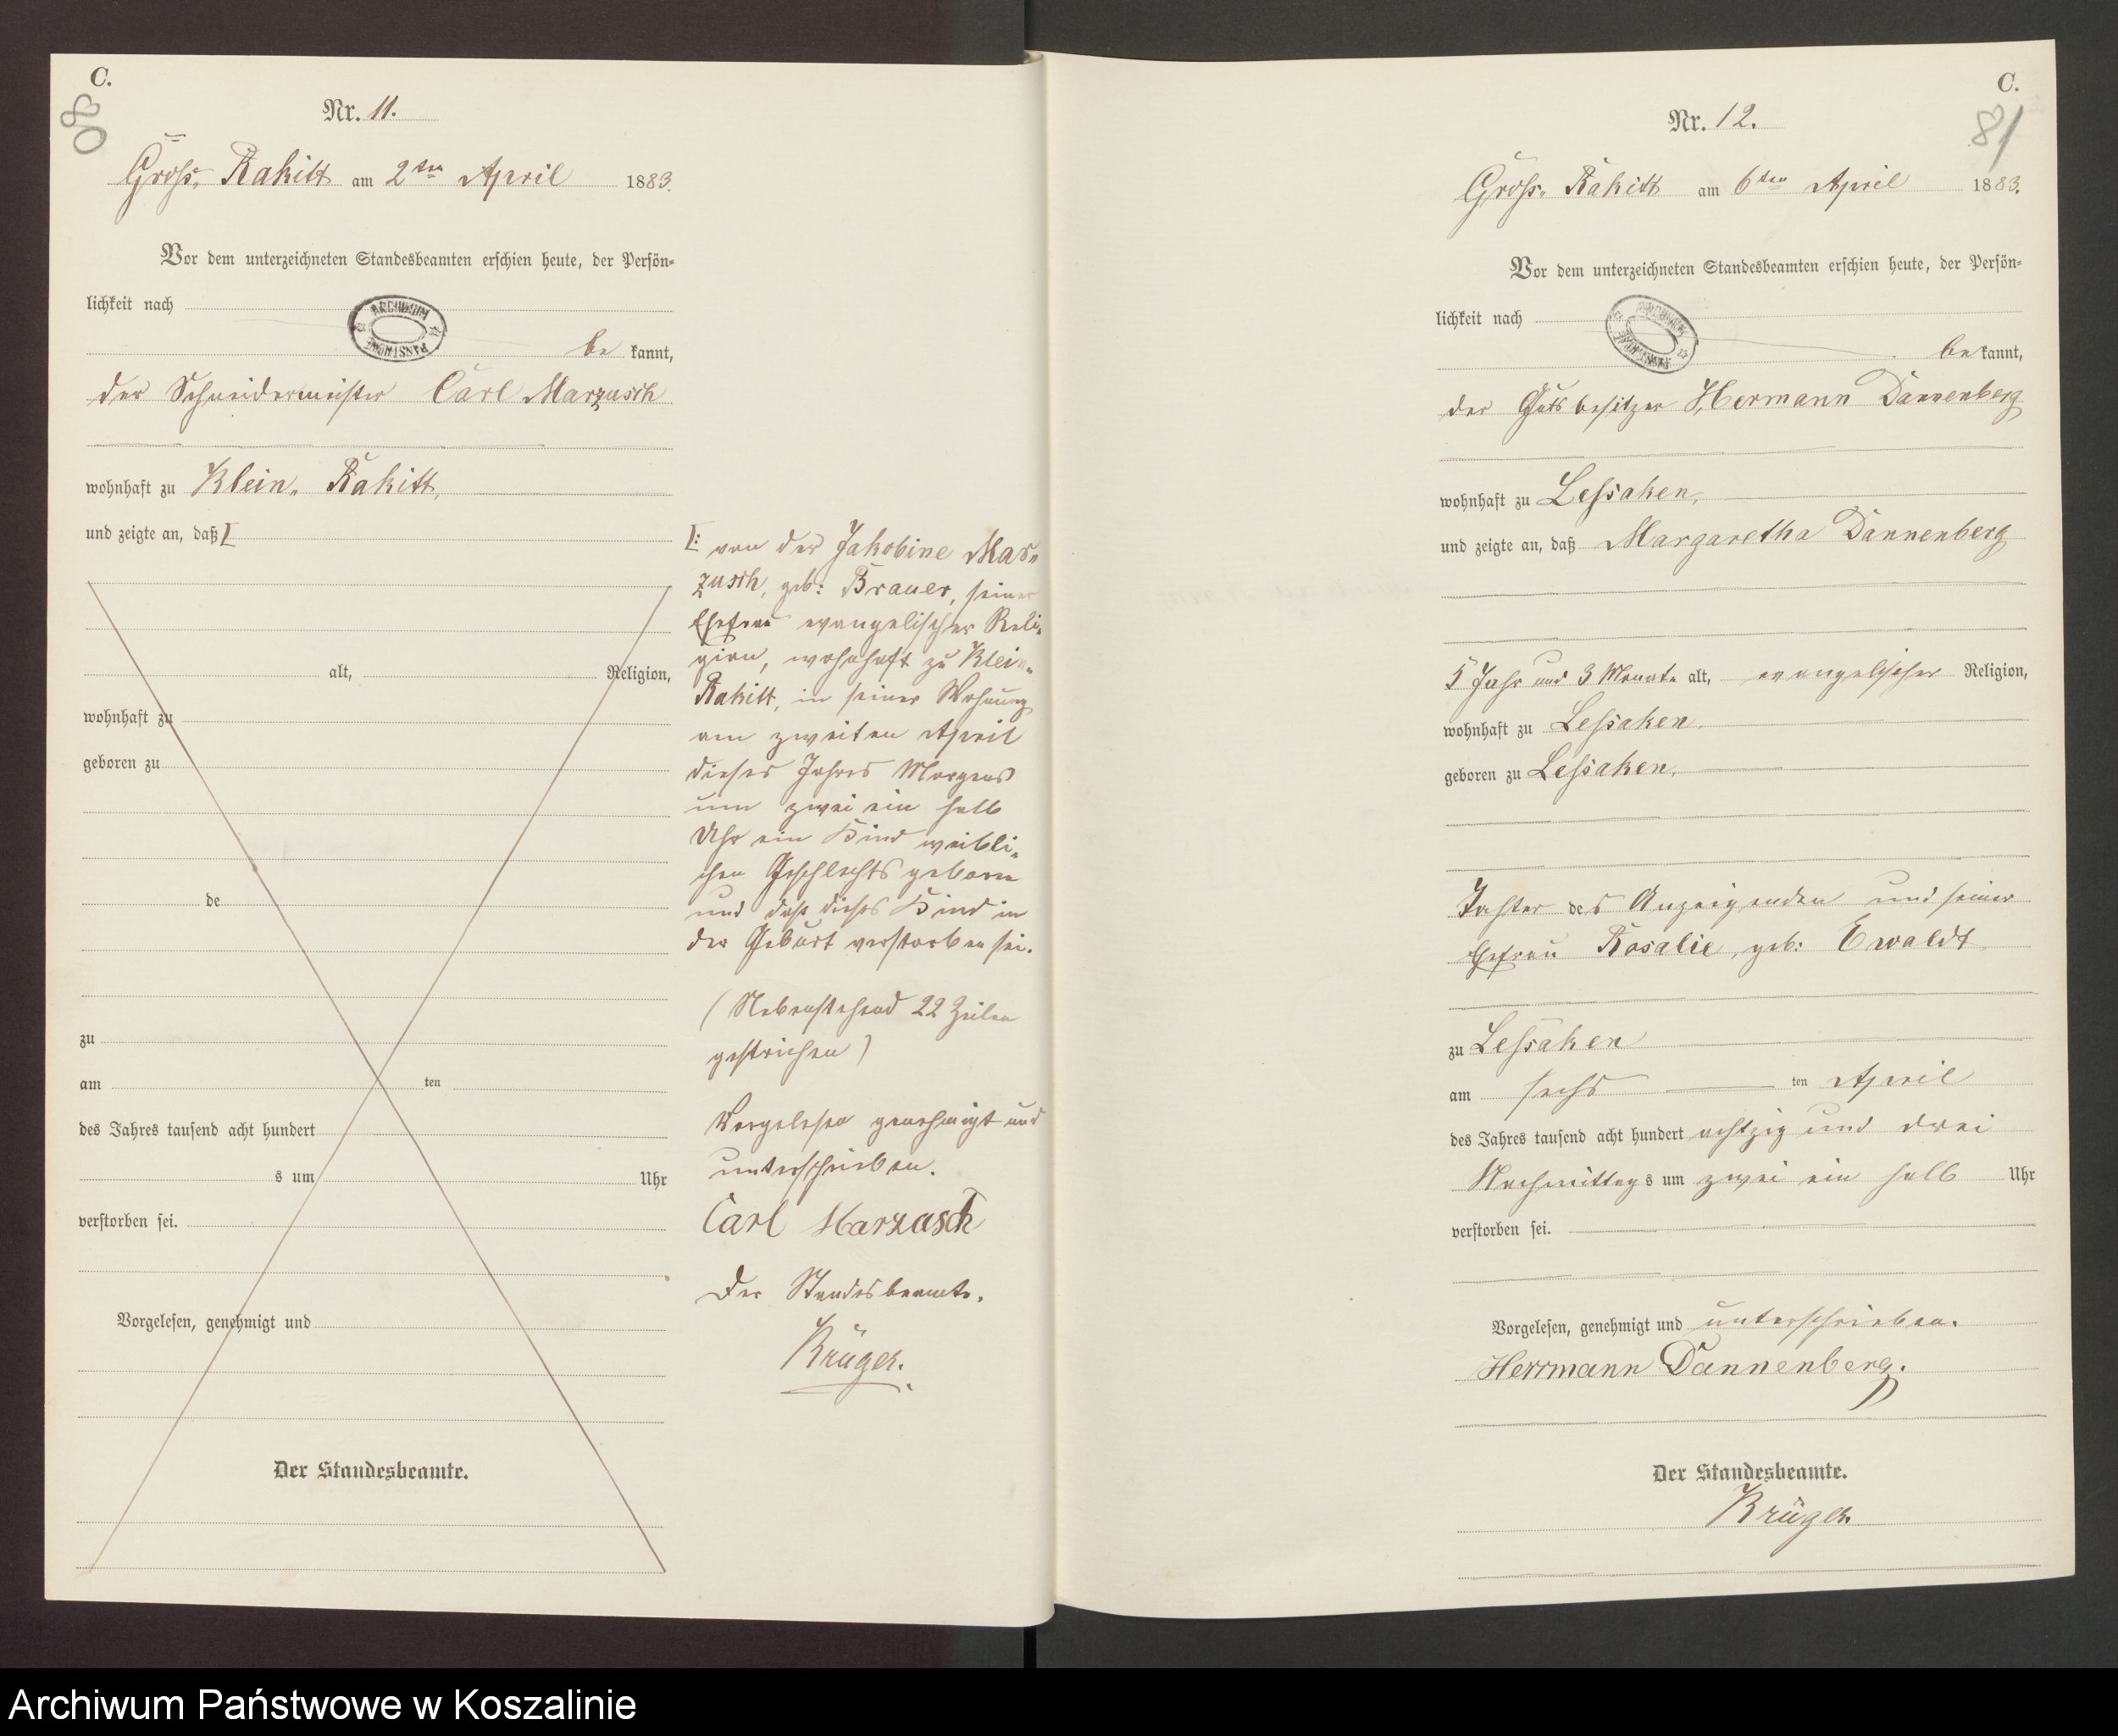 C.
80
Nr. 11.
Gross. Rakitt am 2ten April 1883.
Vor dem unterzeichneten Standesbeamten erschien heute, der Persön-
lichkeit nach
ARCHIWUM PAŃSTWOWE
be kannt,
der Schneidermeister Carl Marzusch
wohnhaft zu Klein. Rakitt,
und zeigte an, daß
alt, Religion,
wohnhaft zu
geboren zu
de
zu
am ten
des Jahres tausend acht hundert
s um Uhr
verstorben sei.
Vorgelesen, genehmigt und
Der Standesbeamte.
von der Jakobine Mar-
zusch, geb: Brauer, seiner
Ehefrau evangelischer Reli-
gion, wohnhaft zu Klein-
Rakitt, in seiner Wohnung
am zweiten April
dieses Jahres Morgens
um zwei ein halb
Uhr ein Kind weibli-
chen Geschlechts geboren
und daß dieses Kind in
der Geburt verstorben sei.
(Nebenstehend 22 Zeilen
gestrichen)
Vorgelesen genehmigt und
unterschrieben.
Carl Marzusch
Der Standesbeamte.
Krüger.
C.
81
Nr. 12.
Gross. Rakitt am 6ten April 1883.
Vor dem unterzeichneten Standesbeamten erschien heute, der Persön-
lichkeit nach
ARCHIWUM PAŃSTWOWE
be kannt,
der Gutsbesitzer Hermann Dannenberg
wohnhaft zu Lessaken,
und zeigte an, daß Margaretha Dannenberg
5 Jahr und 3 Monate alt, evangelischer Religion,
wohnhaft zu Lessaken.
geboren zu Lessaken,
Tochter des Anzeigenden und seiner
Ehefrau Rosalie, geb: Ewaldt
zu Lessaken
am sechs ten April
des Jahres tausend acht hundert achtzig und drei
Nachmittags um zwei ein halb Uhr
verstorben sei.
Vorgelesen, genehmigt und unterschrieben.
Herrmann Dannenberg.
Der Standesbeamte.
Krüger.
Archiwum Państwowe w Koszalinie